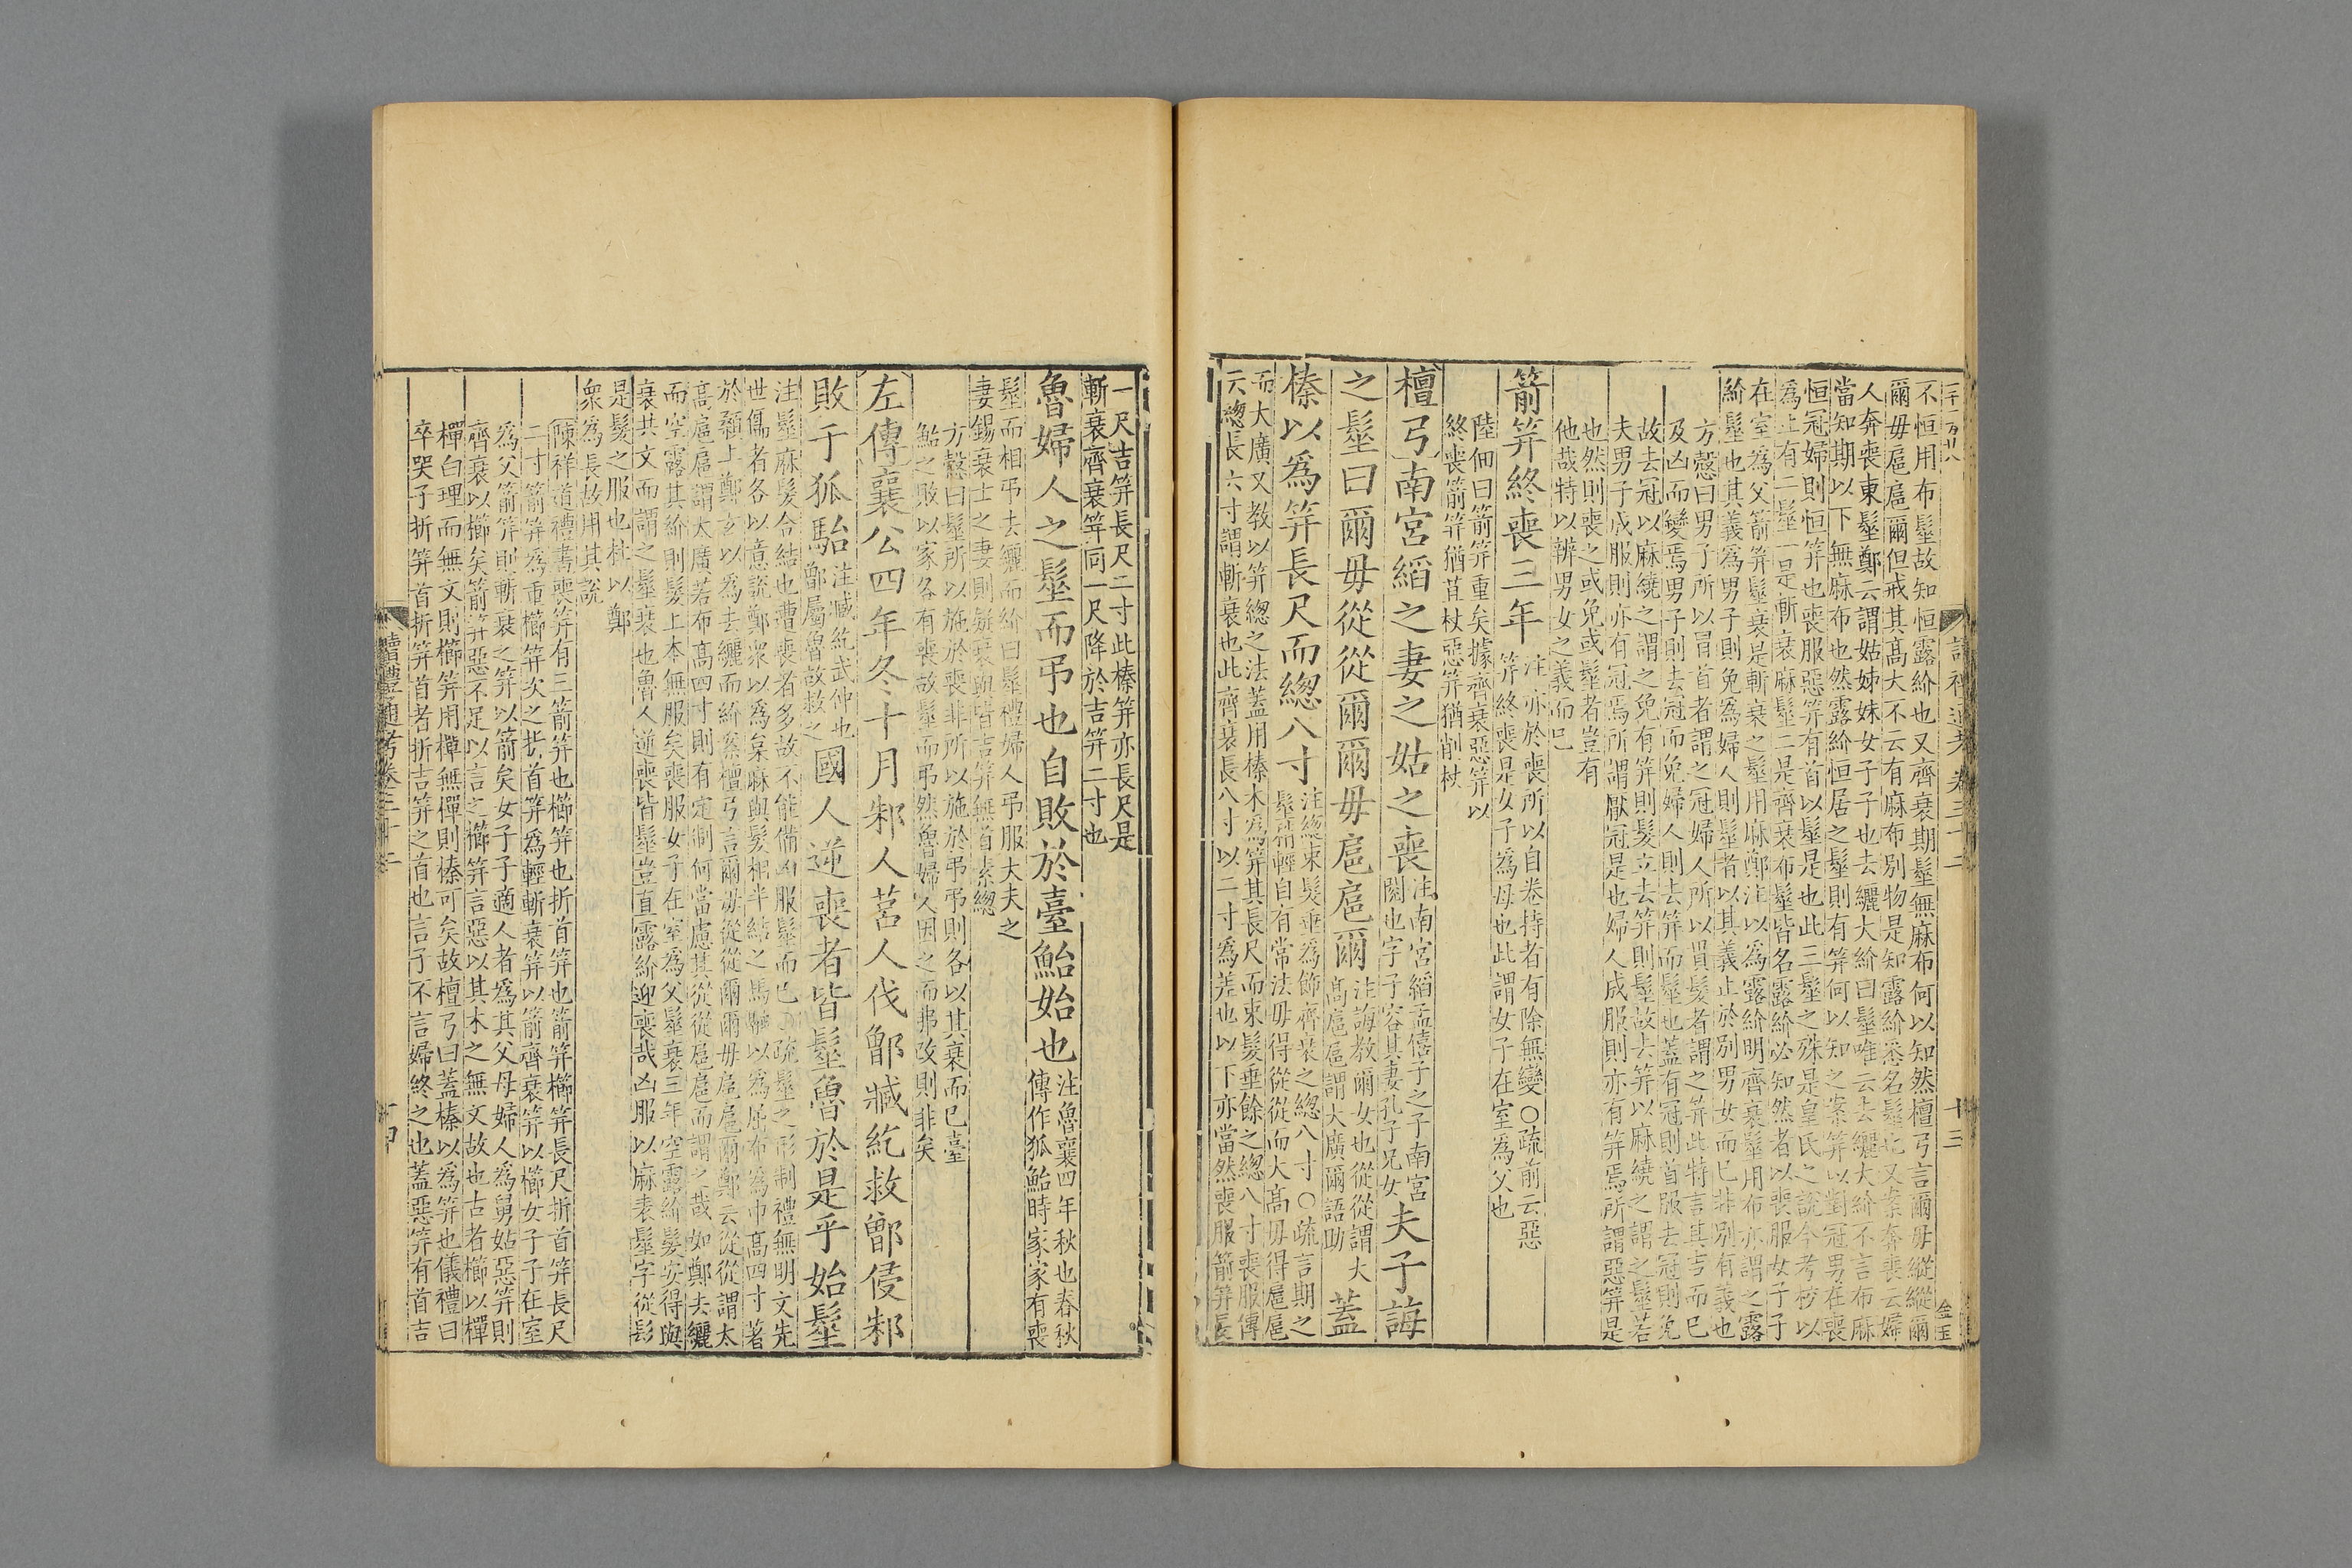 三十一万廿八
讀禮通考卷三十二
十三
金玉
不恒用布髽故知恒露紒也又齊衰期髽無麻布何以知然檀弓言爾毋縱縱爾
爾毋扈扈爾但戒其髙大不云有麻布別物是知露紒悉名髽也又案奔喪云婦
人奔喪東髽鄭云謂姑姊妹女子子也去纚大紒曰髽唯云去纚大紒不言布麻
當知期以下無麻布也然露紒恒居之髽則有笄何以知之案笄以對冠男在喪
恒冠婦則恒笄也喪服惡笄有首以髽是也此三髽之殊是皇氏之說今考校以
爲止有二髽一是斬衰麻髽二是齊衰布髽皆名露紒必知然者以喪服女子子
在室爲父箭笄髽衰是斬衰之髽用麻鄭注以爲露紒明齊衰髽用布亦謂之露
紒髽也其義爲男子則免爲婦人則髽者以其義止於別男女而已非別有義也
方慤曰男子所以冒首者謂之冠婦人所以貫髮者謂之笄此特言其吉而已
及凶而變焉男子則去冠而免婦人則去笄而髽也蓋有冠則首服去冠則免
故去冠以麻繞之謂之免有笄則髮立去笄則髽故去笄以麻繞之謂之髽若
夫男子成服則亦有冠焉所謂厭冠是也婦人成服則亦有笄焉所謂惡笄是
也然則喪之或免或髽者豈有
他哉特以辨男女之義而已
箭笄終喪三年注亦於喪所以自卷持者有除無變○疏前云惡
笄終喪是女子爲母也此謂女子在室爲父也
陸佃曰箭笄重矣據齊衰惡笄以
終喪箭笄猶苴杖惡笄猶削杖
檀弓南宮縚之妻之姑之喪注南宮縚孟僖子之子南宮
閱也字子容其妻孔子兄女夫子誨
之髽曰爾毋從從爾爾毋扈扈爾注誨教爾女也從從謂大
髙扈扈謂大廣爾語助蓋
榛以爲笄長尺而總八寸注總束髮垂爲飾齊衰之總八寸○疏言期之
髽稍輕自有常法毋得從從而大髙毋得扈扈
而大廣又教以笄總之法蓋用榛木爲笄其長尺而束髮垂餘之總八寸喪服傳
云總長六寸謂斬衰也此齊衰長八寸以二寸爲差也以下亦當然喪服箭笄長
一尺吉笄長尺二寸此榛笄亦長尺是
斬衰齊衰笄同一尺降於吉笄二寸也
魯婦人之髽而弔也自敗於臺鮐始也注魯襄四年秋也春秋
傳作狐鮐時家家有喪
髽而相弔去纚而紒曰髽禮婦人弔服大夫之
妻錫衰士之妻則疑衰與皆吉笄無首素總
方慤曰髽所以施於喪非所以施於弔弔則各以其衰而已臺
鮐之敗以家各有喪故髽而弔然魯婦人因之而弗改則非矣
左傳襄公四年冬十月邾人莒人伐鄫臧紇救鄫侵邾
敗于狐駘注臧紇武仲也
鄫屬魯故救之國人逆喪者皆髽魯於是乎始髽
注髽麻髮合結也遭喪者多故不能備凶服髽而已○疏髽之形制禮無明文先
世儒者各以意說鄭衆以爲枲麻與髮相半結之馬融以爲屈布爲巾髙四寸著
於顙上鄭玄以爲去纚而紒案檀弓言爾毋從從爾爾毋扈扈爾鄭云從從謂太
髙扈扈謂太廣若布髙四寸則有定制何當慮其從從扈扈而謂之哉如鄭去纚
而空露其紒則髮上本無服矣喪服女子在室爲父髽衰三年空露紒髮安得與
衰共文而謂之髽衰也魯人逆喪皆髽豈直露紒迎喪哉凶服以麻表髽字從髟
是髮之服也杜以鄭
衆爲長故用其說
陳祥道禮書喪笄有三箭笄也櫛笄也折首笄也箭笄櫛笄長尺折首笄長尺
二寸箭笄爲重櫛笄次之折首笄爲輕斬衰笄以箭齊衰笄以櫛女子子在室
爲父箭笄則斬衰之笄以箭矣女子子適人者爲其父母婦人爲舅姑惡笄則
齊衰以櫛矣箭笄惡不足以言之櫛笄言惡以其木之無文故也古者櫛以樿
樿白理而無文則櫛笄用樿無樿則榛可矣故檀弓曰蓋榛以爲笄也儀禮曰
卒哭子折笄首折笄首者折吉笄之首也言子不言婦終之也蓋惡笄有首吉
讀禮通考卷三十二
十四